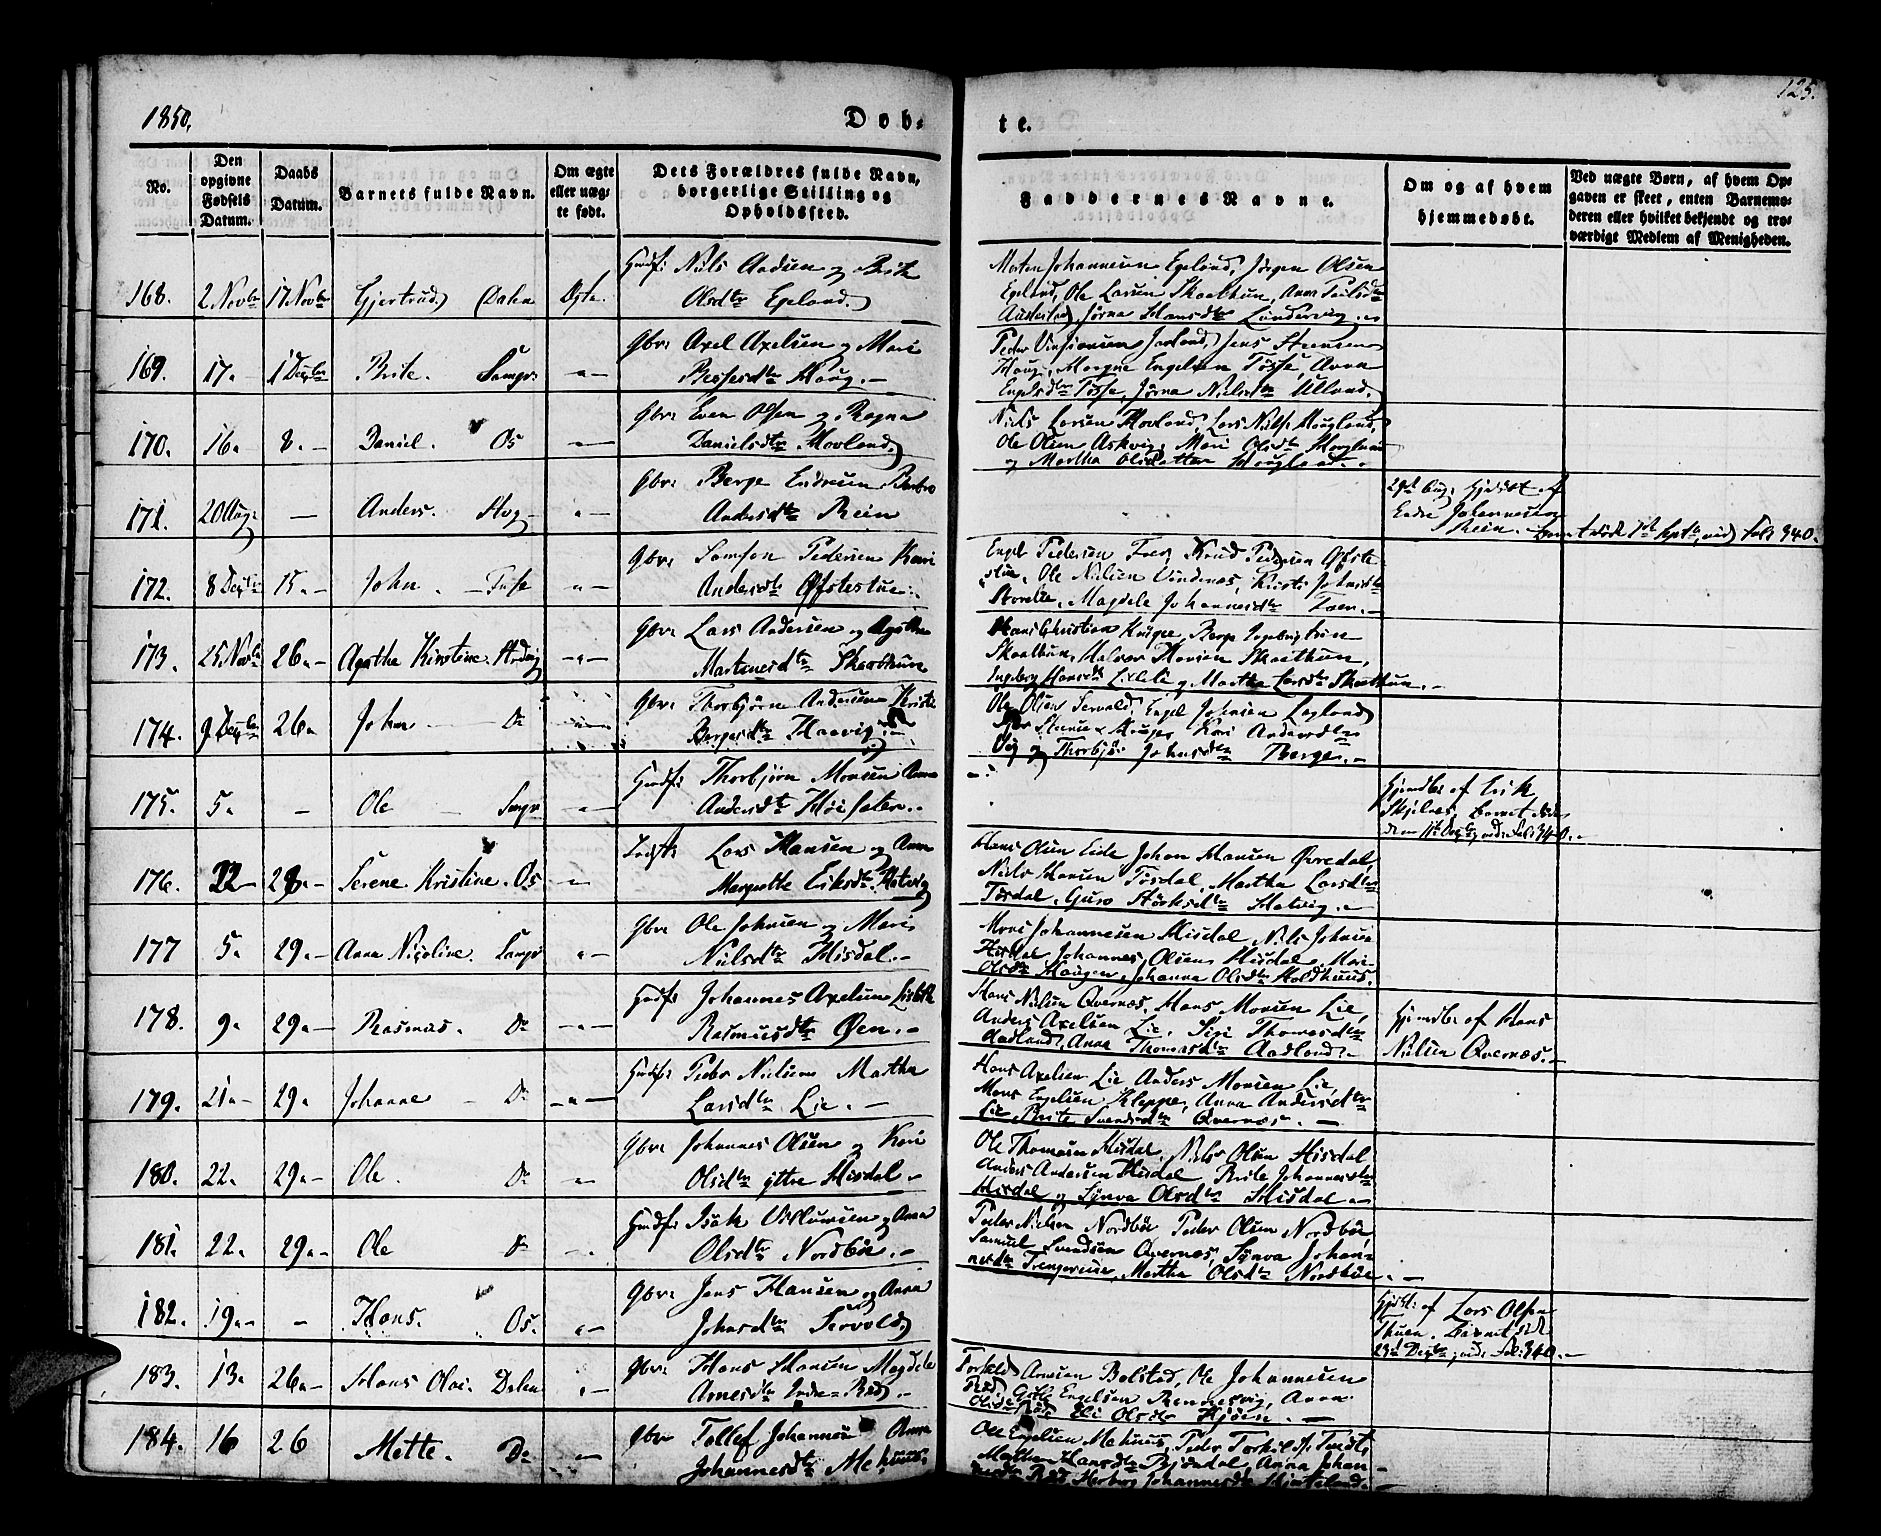 1850.
Døb-
te.
125.
No.
Den
opgivne
Fødsels
Datum.
Daabs
Datum.
Barnets fulde Navn.
Om ægte
eller uæg-
te født.
Dets Forældres fulde Navn,
borgerlige Stilling og
Opholdssted.
Faddernes Navne.
Om og af hvem
hjemmedøbt.
Ved uægte Børn, af hvem Op-
gaven er skeet, enten Barnemo-
deren eller hvilket bekjendt og tro-
værdigt Medlem af Menigheden.
168. 2 Novbr 17 Novbr Gjertrud Dalen Ægte
Huusf: Niels Aadsen og Brite
Olsdtr Egeland.
Morten Johannesen Egeland, Jørgen Olsen
Egeland, Ole Larsen Skaathun, Anna
Jørna Hansdtr Lundervig.
169. 17. 1 Decbr Brite.
Gbr: Axel Axelsen og Mari
Haug.
Peder Jens
Haug, Mogne Engelsen Tøsse, Anna
Engelsdtr Tøsse, Jørna Nielsdtr Ulland.
170. 16. 8. Daniel. Os
Gbr: Even Olsen og Ragna
Danielsdtr Hovland.
Niels Larsen Hovland, Lars Niels Haugland,
Ole Olsen Askvig, Mari Olsdtr
og Martha Olsdatter Haugland.
171. 20 Aug: — Anders. Hog
Gbr: Berge Endresen Barbro
Andersdtr Rein
29de Aug: hjemdøbt af
Endre Johannesen
Rein. Barnet døde 1ste Septbr, vid. Fol: 340.
172. 8 Decbr 15. John. Fuse
Gbr: Samson Pedersen Kari
Andersdtr Øfstestue.
Engel Pedersen Knud Pedersen Øfste-
stue, Ole Nielsen Vindenes, Kristi Johnsdtr
Magdele Johannesdtr
173. 25 Novbr 26. Agatha Kirstine.
Gbr: Lars Andersen og Agatha
Mortensdtr Skaathun
Hans Christian Berge
Skaathun, Halvor Hansen Skaathun,
Ingeborg Hansdtr og Martha Larsdtr Skaathun.
174. 9 Decbr 26. John Do
Gbr: Thorbjørn Andersen Kristi
Bergesdtr Haavig
Ole Olsen Servold, Engel Johnsen
Kari Andersdtr
og Johnsdtr Berge.
175. 5. — Ole
Huusf: Thorbjørn Monsen Anna
Andersdtr Høisæter.
Hjemdbt af Erik
Skjelnes, Barnet døde
den 11te Decbr, vid. Fol: 340.
176. 22 29. Serene Kristine. Os
Lars Hansen og Anna
Margrethe Eriksdtr Hatvig
Hans Olsen Eide Johan Hansen Øvredal,
Niels Hansen Tøsdal, Martha Larsdtr
Tøsdal, Guro Størksdtr Hatvig.
177 5. 29. Anna Nicoline.
Gbr: Ole Johnsen og Mari
Nielsdtr Hisdal.
Mons Johannesen Hisdal, Niels Johnsen
Hisdal, Johannes Olsen Hisdal, Mari
Olsdtr Haugen, Johanna Olsdtr Holdhuus.
178. 9. 29. Rasmus. Do
Huusf: Johannes Axelsen Lisbeth
Rasmusdtr Øen.
Hans Nielsen Qvernæs, Hans Monsen Lie,
Anders Axelsen Lie, Siri Thomasdtr
Aadland, Anna Thomasdtr Aadland.
Hjemdbt af Hans
Nielsen Qvernæs.
179. 21. 29. Johanne Do
Huusf: Peder Nielsen Martha
Larsdtr Lie.
Hans Axelsen Lie, Anders Monsen Lie,
Mons Engelsen Kleppe, Anna Andersdtr
Lie, Brite Svendsdtr Qvernæs.
180. 22. 29. Ole. Do
Gbr: Johannes Olsen og Kari
Olsdtr yttre Hisdal.
Ole Thomasen Hisdal, Niels Olsen Hisdal
Anders Andersen Hisdal Brite Johannesdtr
Hisdal og Synva Olsdtr Hisdal.
181. 22. 29. Ole Do
Huusf: Isak Villumsen og Anna
Olsdtr Nordbøe.
Peder Nielsen Nordbøe Peder Olsen Nordbøe,
Samuel Svendsen Qvernæs, Synva Johan-
nesdtr Martha Olsdtr Nordbøe.
182. 19. — Hans. Os.
Gbr: Jens Hansen og Anna
Johnsdtr Servold
Hjdbt: af Lars Olsen
Barnet død
23de Decbr, vid. Fol: 340.
183. 13. 26. Hans Olai Dalen
Gbr: Hans Hansen Magdele
Arnesdtr Indre Rød.
Torkild Arnesen Bolstad, Ole Johannesen
Rød, Engelsen Anna
Eli Olsdtr
184. 16 26 Mette. Do
Gbr Tollef Johannesen Anna
Johannesdtr Mehuus.
Ole Engelsen Mehuus, Peder
Martha Hansdtr Bjørndal, Anna Johan-
nesdtr Rød, Johannesdtr